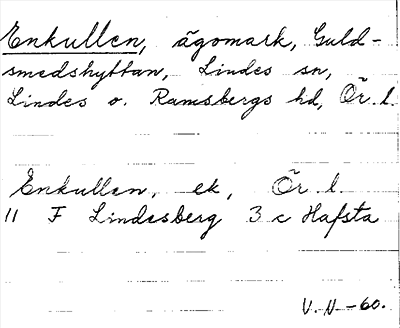 Enkullen, ägomark, Guld-
smedshyttan, Lindes sn,
Lindes o. Ramsbergs hd, Ör. l.
Enkullen, ek, Ör. l.
11 F Lindesberg 3 c Hafsta
V.V-60.